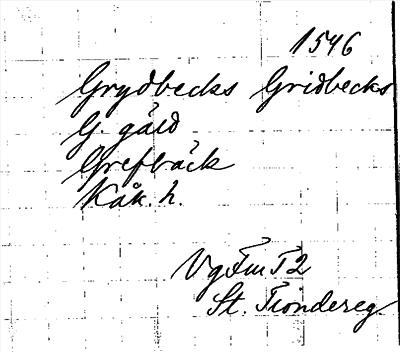 1546
Grydbecks Gridbecks
G. gård
Grefbäck
Kåk. h.
Vg Fm T2
St. Tiondereg.